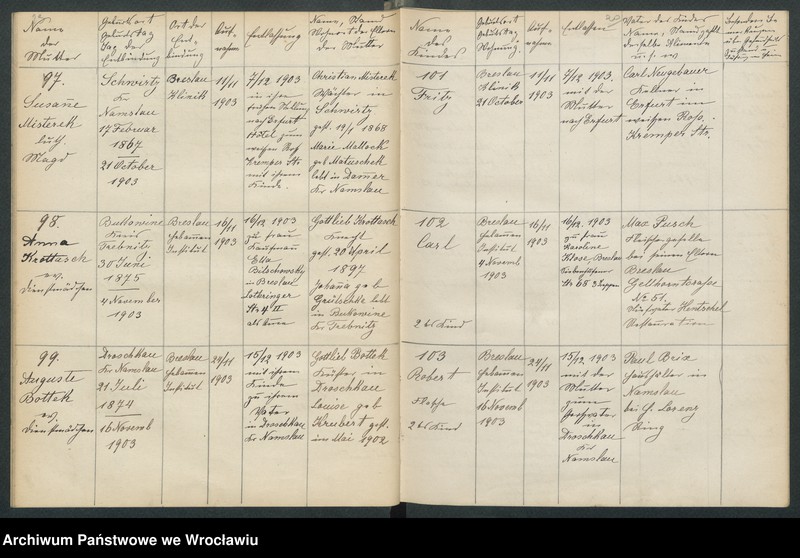 Name
der
Mutter
Geburtsort
Geburtstag
Tag der
Entbindung
Ort der
Ent-
bindung
Auf-
nahme
Entlassung
Name, Stand
Wohnort der Eltern
der Mutter
Name
des
Kindes
Geburtsort
Geburtstag
Auf-
nahme
Entlassen
Vater des Kindes
97.
Susane
Misterek
luth.
Magd
Schwirtz
Kr
Namslau
17 Februar
1867
21 October
1903
Breslau
Klinik
11/11
1903
7/12 1903
nach Erfurt
Hotel zum
weißen Roß
Kremper Str.
mit ihrem
Kinde.
Christian Misterek
Wächter in
Schwirtz
gest. 19/1 1868
Marie Mallock
geb Matuschek
lebt in Dammer
Kr Namslau
101
Fritz
Breslau
Klinik
21 October
11/11
1903
7/12 1903.
mit der
Mutter
nach Erfurt
Carl Neugebauer
Kellner in
Erfurt im
weißen Roß.
Kremper Str.
98.
Anna
Krottasch
ev.
Dienstmädchen
Bukowine
Kreis
Trebnitz
30 Juni
1875
4 November
1903
Breslau
Hebammen
Institut
16/11
1903
16/12 1903
zu Frau
Kaufmann
Etta
in Breslau
Lothringer
Str 4 II
als Amme
Gottlieb Krottasch
Knecht
gest. 20 April
1897
geb
lebt
in Bukowine
Kr Trebnitz
102
Carl
2 tes Kind
Breslau
Hebammen
Institut
4 Novemb
1903
16/11
1903
16/12. 1903
zu Frau
Karoline
Klose, Breslau
Str 68
Max Pusch
Fleischergeselle
bei seinen Eltern
Breslau
Gellhornstrasse
No 51.
Hentschel
Restauration
99.
Auguste
Bottek
ev,
Dienstmädchen
Droschkau
Kr Namslau
21 Juli
1874
16 Novemb
1903
Breslau
Hebammen
Institut
24/11
1903
15/12 1903
mit ihrem
Kinde
zu ihrem
Vater
in Droschkau
Kr Namslau
Gottlieb Bottek
in
Droschkau
Louise geb
gest.
im Mai 1902
103
Robert
2 tes Kind
Breslau
Hebammen
Institut
16 Novemb
1903
24/11
1903
15/12. 1903
mit der
Mutter
zum
Großvater
in
Droschkau
Kr
Namslau
Paul Brix
Haushälter in
Namslau
bei H. Lorenz
Ring
Archiwum Państwowe we Wrocławiu